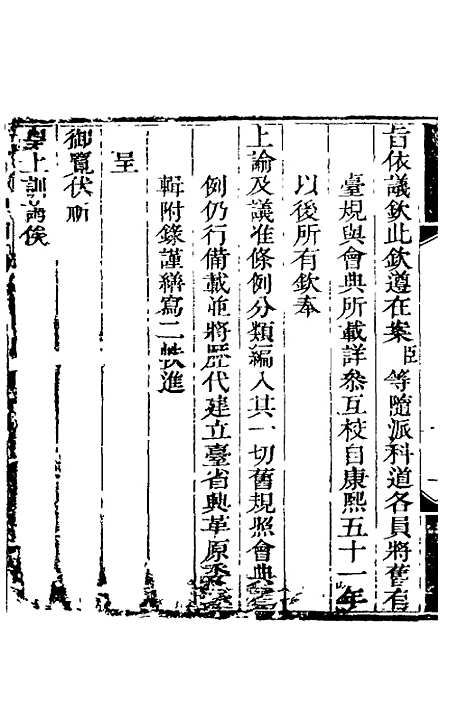 旨依議欽此欽遵在案臣等隨派科道各員將舊有
臺規與會典所載詳叅互校自康熙五十一年
以後所有欽奉
上諭及議准條例分類編入其一切舊規照會典之
例仍行備載並將歷代建立臺省興革原委
輯附錄謹繕寫二帙進
呈
御覽伏祈
皇上訓誨俟